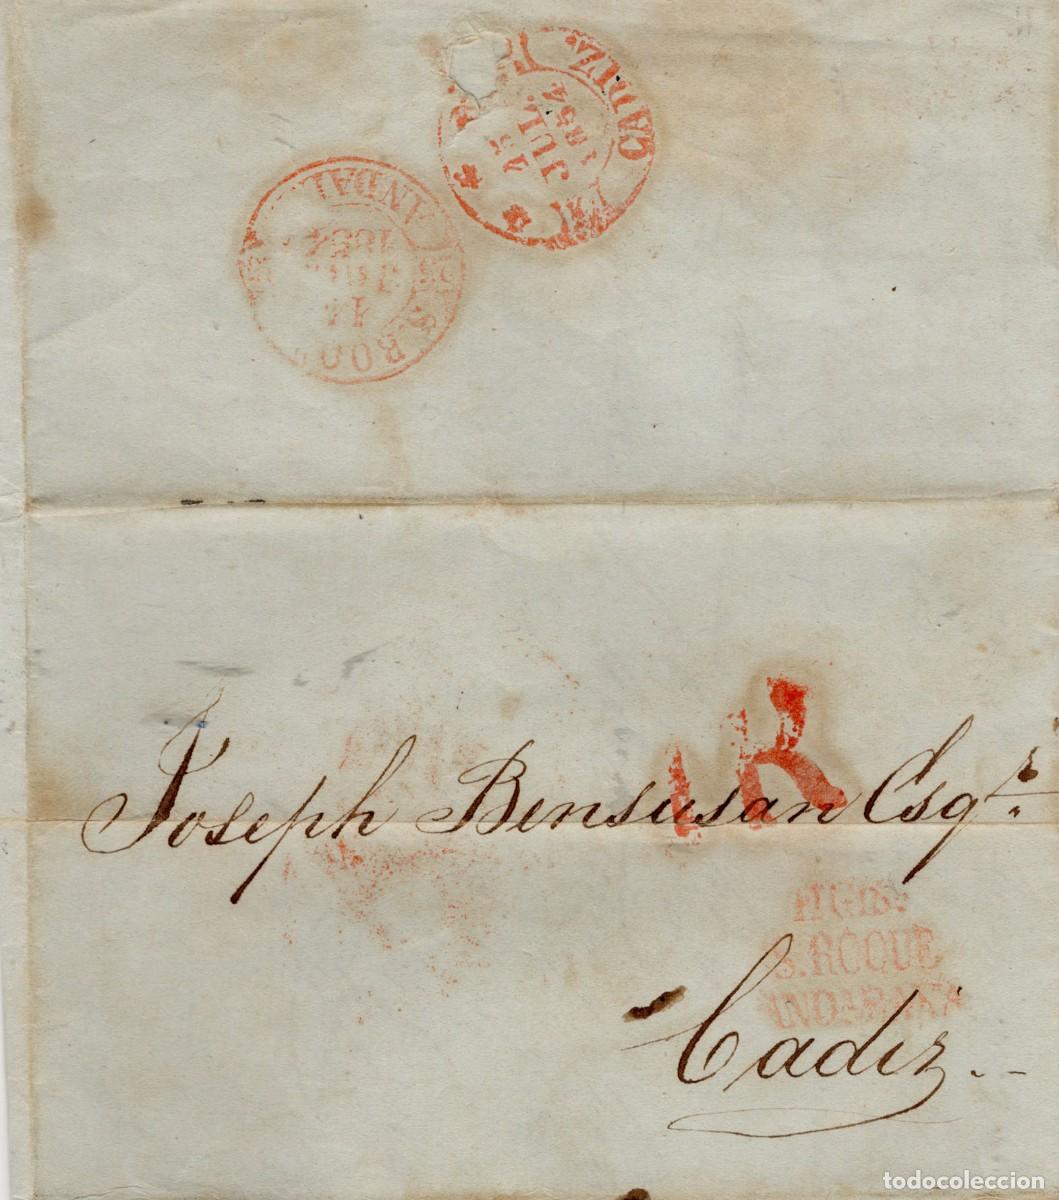 CADIZ.
15
JUL.
1854
S. ROQUE
ANDAL
14
JUL.
1854
1R
Joseph Bensusan Esqr.
S. ROQUE
Cadiz.
todocoleccion